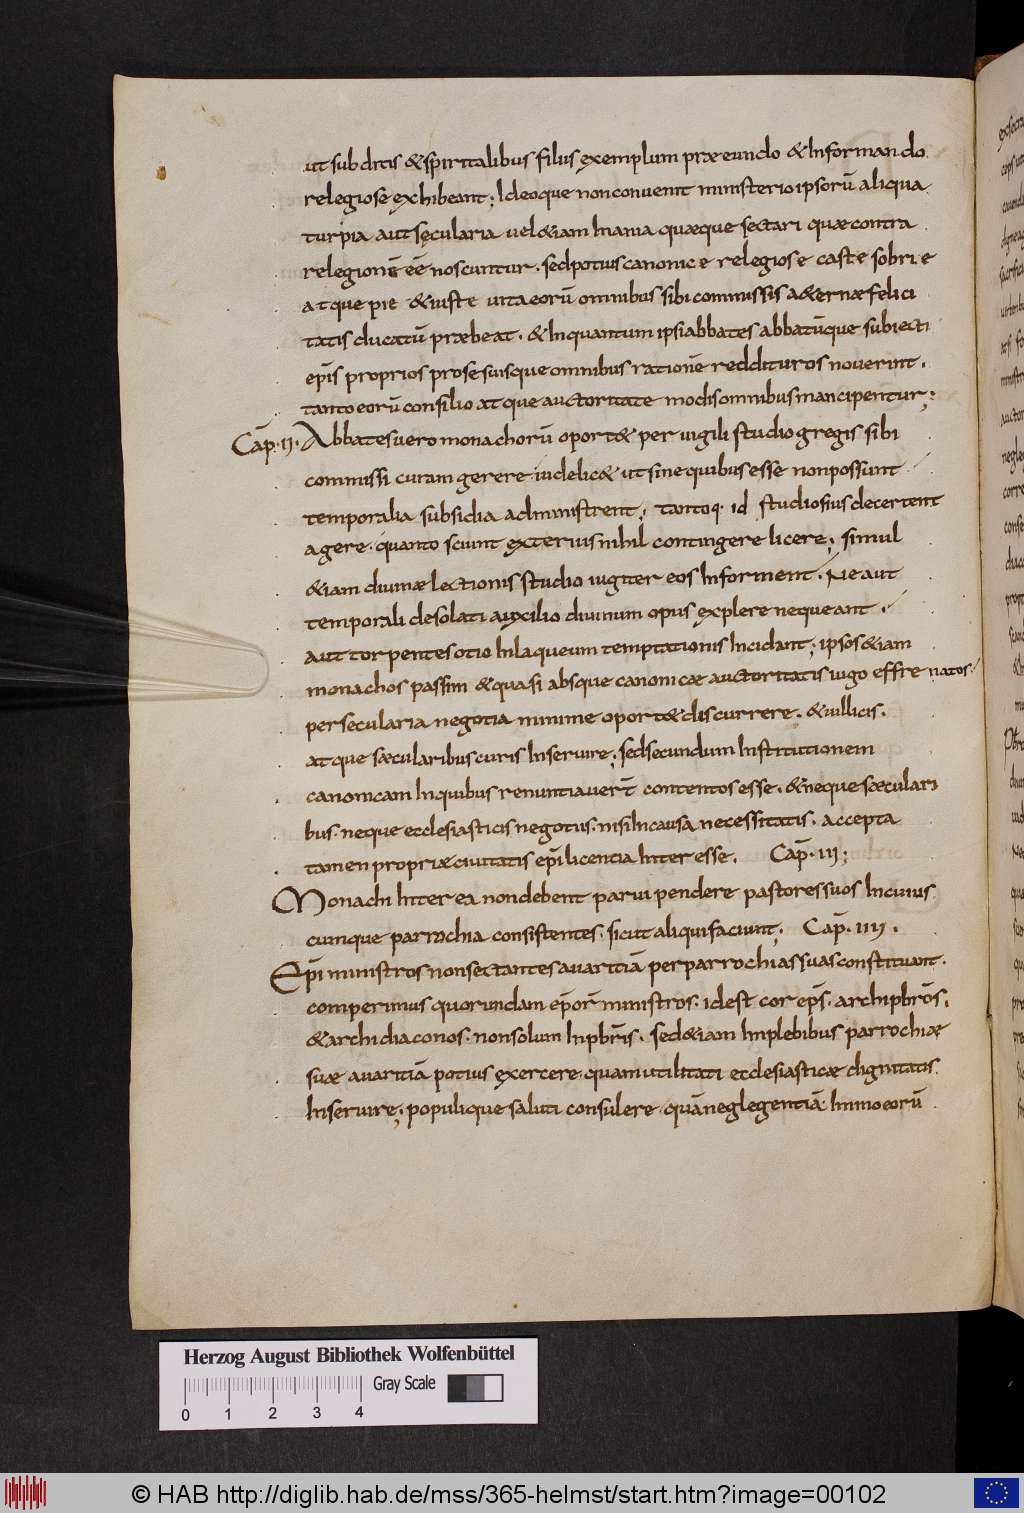 ut subditis & spiritalibus filiis exemplum præeundo & Informando
relegiose exhibeant; Ideoque non convenit ministerio ipsorū aliqua
turpia aut sęcularia vel &iam Inania quæque sectari quæ contra
relegionē eē noscuntur. sed potius canonice relegiose caste sobrie
atque pie & iuste vita eorū omnibus sibi commissis a&ernæ felici
tatis ducatū præbeat. & Inquantum ipsi abbates abbatūque subiecti
ep̄is proprios pro se suisque omnibus rationē reddituros noverint.
tanto eorū consilio atque auctoritate modis omnibus mancipentur;
Cap̄. II. Abbates vero monachorū oport& pervigili studio gregis sibi
commissi curam gerere. iudelic& ut sine quibus esse non possunt
temporalia subsidia administrent; tantoq· id studiosius decertent
agere. quanto sciunt exterius nihil contingere licere; simul
&iam divinæ lectionis studio iugiter eos Informent. Ne aut
temporali desolati auxilio divinum opus explere nequeant.
aut torpentes otio In laqueum temptationis Incidant; ipsos &iam
monachos passim & quasi absque canonicæ auctoritatis iugo effrenatos
per secularia negotia minime oport& discurrere. & villicis.
atque sæcularibus curis Inservire; sed secundum Institutionem
canonicam In quibus renuntiaver̄t contentos esse. & neque sæculari
bus. neque ecclesiasticis negotiis. nisi In causa necessitatis. accepta
tamen propriæ civitatis ep̄i licencia Inter esse. Cap̄. III;
Monachi Inter ea non debent parvi pendere pastores suos In cuius
cumque parrochia consistentes. sicut aliqui faciunt; Cap̄. IIII.
Ep̄i ministros non sectantes avaritiā per parrochias suas constituant.
comperimus quorundam ep̄or̄ ministros. idest cor ep̄s. archipb̄ros.
& archidiaconos. non solum In pb̄ris. sed &iam In plebibus parrochiæ
suæ avaritiā potius exercere. quam utilitati ecclesiasticæ dignitatis
Inservire; populique saluti consulere. quā neglegentiā Immo eorū
Herzog August Bibliothek Wolfenbüttel
Gray Scale
0 1 2 3 4
© HAB http://diglib.hab.de/mss/365-helmst/start.htm?image=00102